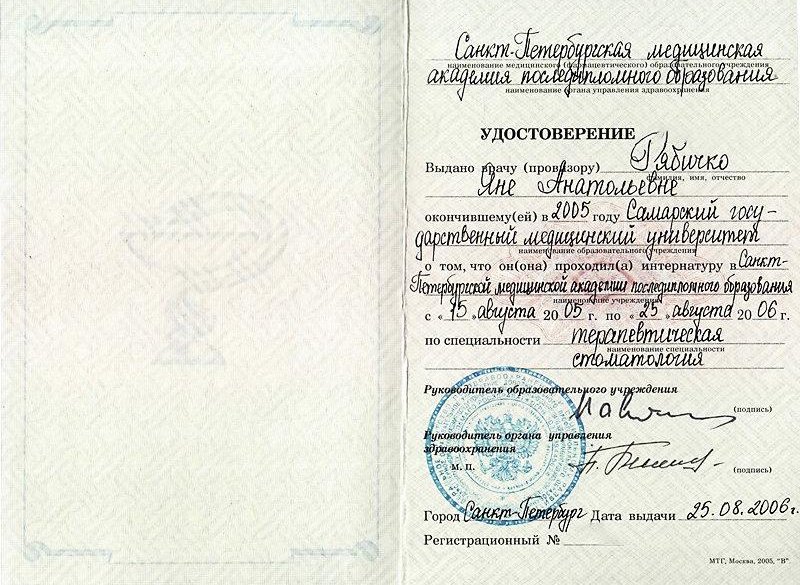 Санкт-Петербургская медицинская
наименование медицинского (фармацевтического) образовательного учреждения
академия последипломного образования
наименование органа управления здравоохранения
УДОСТОВЕРЕНИЕ
Выдано врачу (провизору) Рябичко
фамилия, имя, отчество
Яне Анатольевне
окончившему(ей) в 2005 году Самарский госу-
дарственный медицинский университет
наименование образовательного учреждения
о том, что он(она) проходил(а) интернатуру в Санкт-
Петербургской медицинской академии последипломного образования
наименование учреждения
с «15» августа 2005 г. по «25» августа 2006 г.
по специальности терапевтическая
наименование специальности
стоматология
Руководитель образовательного учреждения
(подпись)
Руководитель органа управления
здравоохранения
м. п.
(подпись)
Город Санкт-Петербург Дата выдачи 25.08.2006г.
Регистрационный №
МТГ, Москва, 2005, "В"